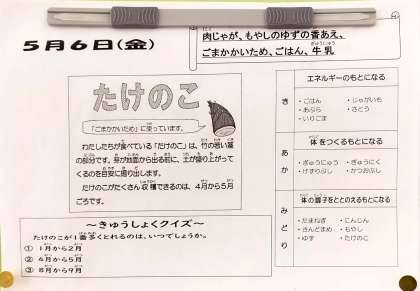 5月6日(金)
肉じゃが、もやしのゆずの香あえ、
ごまかかいため、ごはん、牛乳
ぎゅうにゅう
たけのこ
「ごまかかいため」に使っています。
わたしたちが食べている「たけのこ」は、竹の若い茎
の部分です。芽が地面から出る前に、土が盛り上がって
くるのを目安に掘り出します。
たけのこがたくさん収穫できるのは、4月から5月
ごろです。
～きゅうしょくクイズ～
たけのこが1番多くとれるのは、いつでしょうか。
① 1月から2月
② 4月から5月
③ 8月から9月
エネルギーのもとになる
き
・ごはん ・じゃがいも
・あぶら ・さとう
・いりごま
体をつくるもとになる
あか
・ぎゅうにゅう ・ぎゅうにく
・けずりぶし ・かつおぶし
体の調子をととのえるもとになる
みどり
・たまねぎ ・にんじん
・きんとまめ ・もやし
・ゆず ・たけのこ